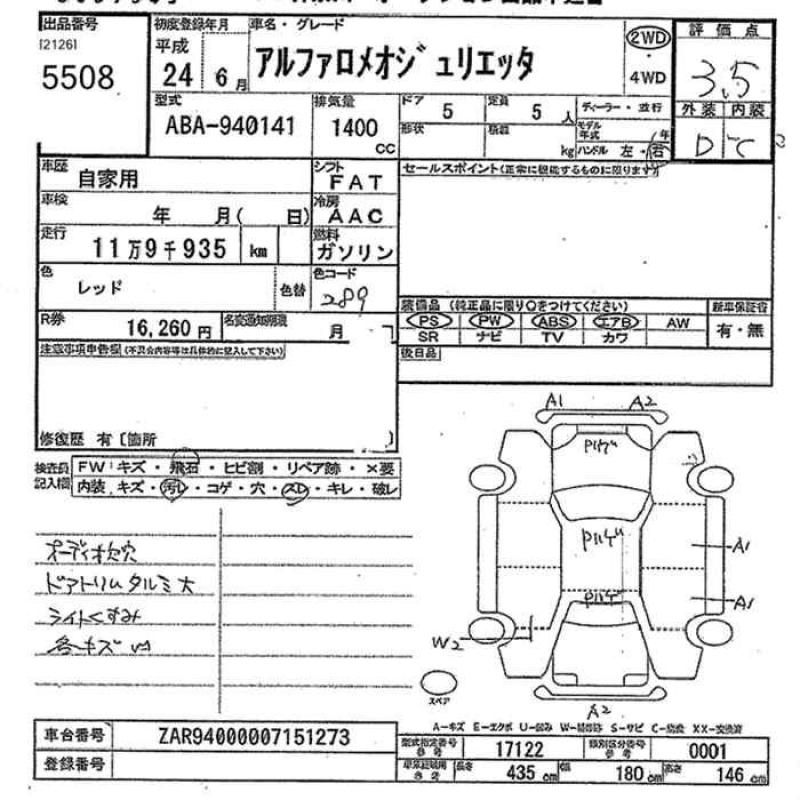 出品番号
[2126]
5508
初度登録年月
平成
24 6月
車名・グレード
アルファロメオジュリエッタ
2WD
・
4WD
評価点
3.5
外装 内装
D C
型式
ABA-940141
排気量
1400
CC
ドア 5
定員 5 人
ディーラー・並行
形状
積載
kg
モデル年式 年
ハンドル 左・右
車歴
自家用
シフト
FAT
セールスポイント(正常に機能するものに限ります)
車検
年 月( 日)
冷房
AAC
走行
11万9千935 km
燃料
ガソリン
色
レッド
色替
色コード
289
装備品 (純正品に限り○をつけてください)
新車保証書
PS PW ABS エアB AW
SR ナビ TV カワ
有・無
R券
16,260円
名変通知期限
月
後日品
注意事項申告欄(不具合内容等は具体的に記入して下さい)
修復歴 有〔箇所 〕
検査員記入欄
FW:キズ・飛石・ヒビ割・リペア跡・×要
内装、キズ・汚レ・コゲ・穴・スレ・キレ・破レ
オーディオ欠穴
ドアトリムタルミ大
ライトくすみ
各キズ
A1 A2
A1
A1
W2
スペア
A2
A-キズ E-エクボ U-凹み W-補修跡 S-サビ C-腐食 XX-交換済
車台番号
ZAR94000007151273
登録番号
型式指定番号 参考
17122
類別区分番号 参考
0001
車両総寸用 参考
長さ 435cm
幅 180cm
高さ 146cm